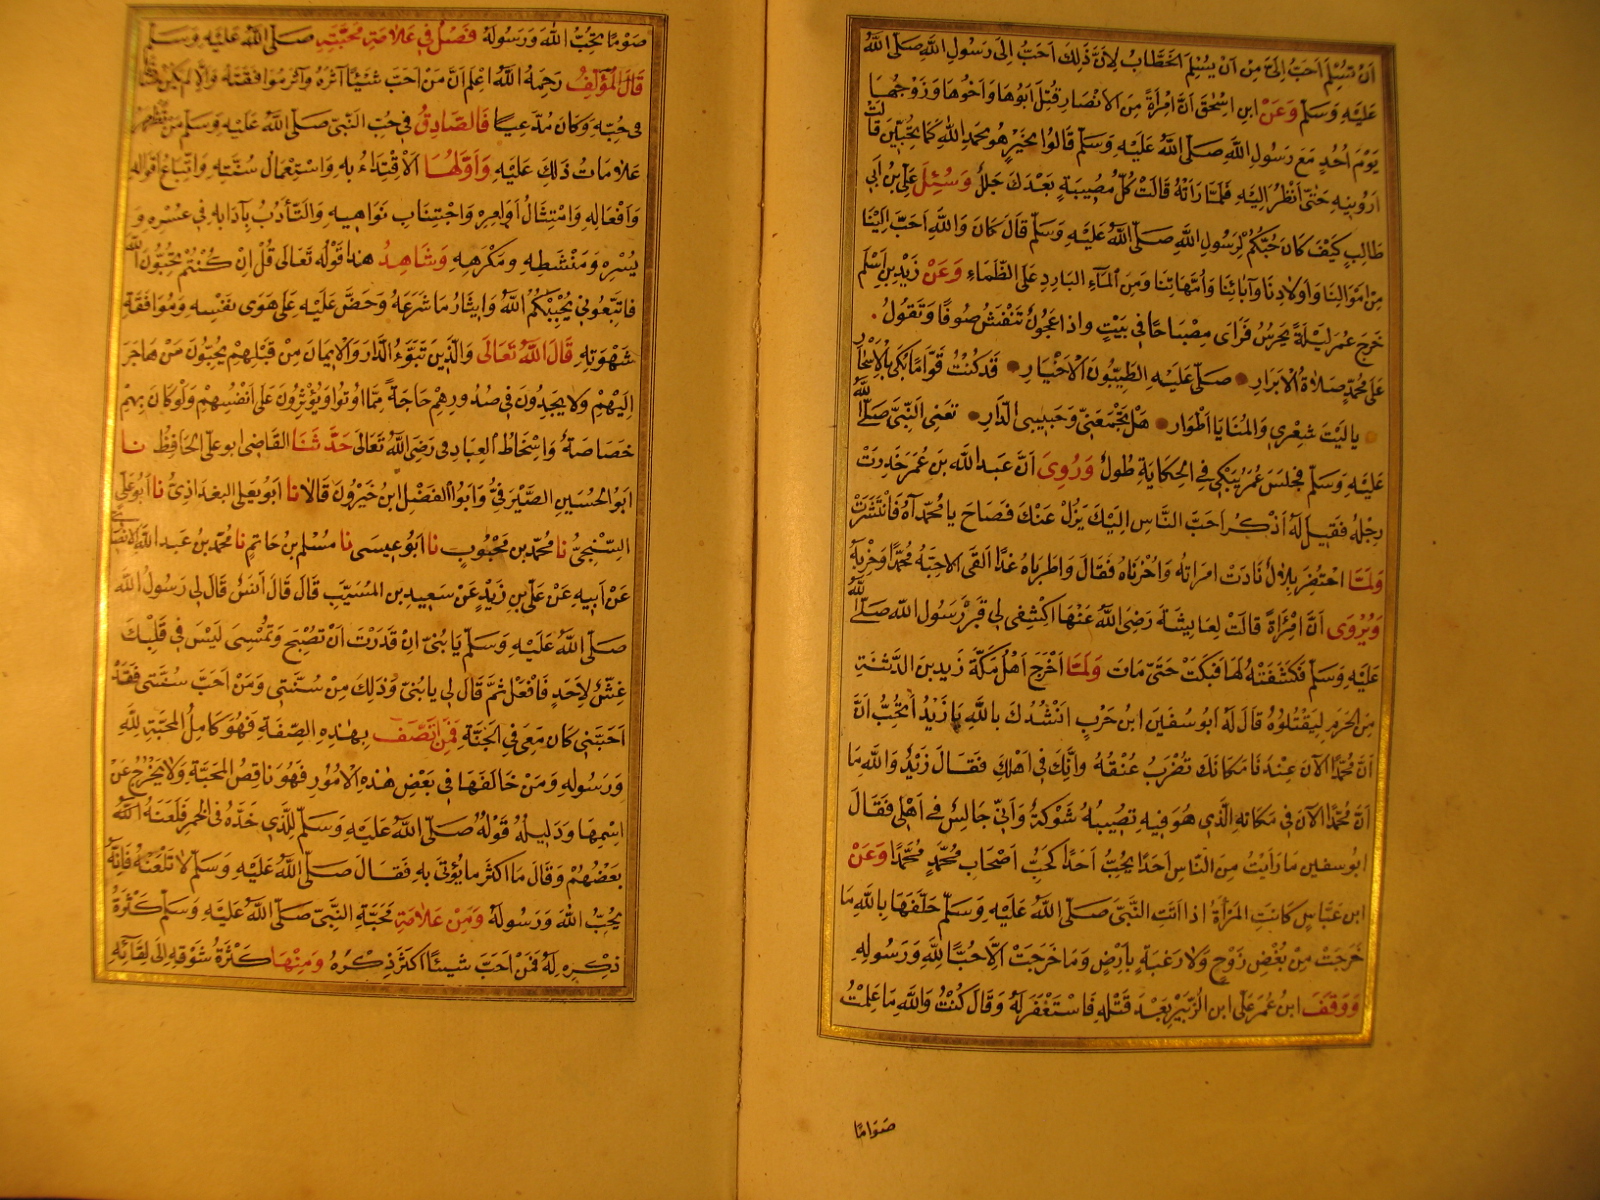 اَنْ تُسْلِمَ اَحَبُّ اِلَيَّ مِنْ اَنْ يُسْلِمَ الْخَطَّابُ لِاَنَّ ذٰلِكَ اَحَبُّ اِلىٰ رَسُولِ اللّٰهِ صَلَّى اللّٰهُ
عَلَيْهِ وَسَلَّمَ وَعَنْ ابنِ اِسْحٰقَ اَنَّ امْرَاَةً مِنَ الْاَنْصَارِ قُتِلَ اَبُوهَا وَاَخُوهَا وَزَوْجُهَا
يَوْمَ اُحُدٍ مَعَ رَسُولِ اللّٰهِ صَلَّى اللّٰهُ عَلَيْهِ وَسَلَّمَ قَالُوا بِخَيْرٍ هُوَ بِحَمْدِ اللّٰهِ كَمَا تُحِبِّينَ قَالَتْ
اَرُونِيهِ حَتّٰى اَنْظُرَ اِلَيْهِ فَلَمَّا رَاَتْهُ قَالَتْ كُلُّ مُصِيبَةٍ بَعْدَكَ جَلَلٌ وَسُئِلَ عَلِىُّ بنُ اَبِى
طَالِبٍ كَيْفَ كَانَ حُبُّكُمْ لِرَسُولِ اللّٰهِ صَلَّى اللّٰهُ عَلَيْهِ وَسَلَّمَ قَالَ كَانَ وَاللّٰهِ اَحَبَّ اِلَيْنَا
مِنْ اَمْوَالِنَا وَاَوْلَادِنَا وَآبَائِنَا وَاُمَّهَاتِنَا وَمِنَ الْمَآءِ الْبَارِدِ عَلَى الظَّمَاءِ وَعَنْ زَيْدِ بنِ اَسْلَمَ
خَرَجَ عُمَرُ لَيْلَةً يَحْرُسُ فَرَاٰى مِصْبَاحًا فِى بَيْتٍ وَاِذَا عَجُوزٌ تَنْفُشُ صُوفًا وَتَقُولُ
عَلىٰ مُحَمَّدٍ صَلَاةُ الْاَبْرَارِ صَلّٰى عَلَيْهِ الطَّيِّبُونَ الْاَخْيَارِ قَدْ كُنْتَ قَوَّامًا بُكًى بِالْاَسْحَارِ
يَا لَيْتَ شِعْرِى وَالْمَنَايَا اَطْوَار هَلْ يَجْمَعُنِى وَحَبِيبِى الدَّارِ تَعْنِى النَّبِىَّ صَلَّى اللّٰهُ
عَلَيْهِ وَسَلَّمَ فَجَلَسَ عُمَرُ يَبْكِى وَفِى الْحِكَايَةِ طُولٌ وَرُوِىَ اَنَّ عَبْدَ اللّٰهِ بنَ عُمَرَ خَدِرَتْ
رِجْلُهُ فَقِيلَ لَهُ اُذْكُرْ اَحَبَّ النَّاسِ اِلَيْكَ يَزُلْ عَنْكَ فَصَاحَ يَا مُحَمَّدَاهُ فَانْتَشَرَتْ
وَلَمَّا احْتُضِرَ بِلَالٌ نَادَتْ امْرَاَتُهُ وَاحُزْنَاهُ فَقَالَ وَاطَرَبَاهُ غَدًا اَلْقَى الْاَحِبَّهْ مُحَمَّدًا وَحِزْبَهْ
وَيُرْوٰى اَنَّ امْرَاَةً قَالَتْ لِعَايِشَةَ رَضِىَ اللّٰهُ عَنْهَا اكْشِفِى لِى قَبْرَ رَسُولِ اللّٰهِ صَلَّى اللّٰهُ
عَلَيْهِ وَسَلَّمَ فَكَشَفَتْهُ لَهَا فَبَكَتْ حَتّٰى مَاتَتْ وَلَمَّا اَخْرَجَ اَهْلُ مَكَّةَ زَيْدَ بنَ الدَّثِنَةِ
مِنَ الْحَرَمِ لِيَقْتُلُوهُ قَالَ لَهُ اَبُو سُفْيٰنَ ابنُ حَرْبٍ اَنْشُدُكَ بِاللّٰهِ يَا زَيْدُ اَتُحِبُّ اَنَّ
اَنَّ مُحَمَّدًا الْآنَ عِنْدَنَا مَكَانَكَ تُضْرَبُ عُنْقُهُ وَاَنَّكَ فِى اَهْلِكَ فَقَالَ زَيْدٌ وَاللّٰهِ مَا
اَنَّ مُحَمَّدًا الْآنَ فِى مَكَانِهِ الَّذِى هُوَ فِيهِ تُصِيبُهُ شَوْكَةٌ وَاَنِّى جَالِسٌ فِى اَهْلِى فَقَالَ
اَبُو سُفْيٰنَ مَا رَاَيْتُ مِنَ النَّاسِ اَحَدًا يُحِبُّ اَحَدًا كَحُبِّ اَصْحَابِ مُحَمَّدٍ مُحَمَّدًا وَعَنْ
ابنِ عَبَّاسٍ كَانَتِ الْمَرْاَةُ اِذَا اَتَتِ النَّبِىَّ صَلَّى اللّٰهُ عَلَيْهِ وَسَلَّمَ حَلَّفَهَا بِاللّٰهِ مَا
خَرَجَتْ مِنْ بُغْضِ زَوْجٍ وَلَا رَغْبَةٍ بِاَرْضٍ وَمَا خَرَجَتْ اِلَّا حُبًّا لِلّٰهِ وَرَسُولِهِ
وَوَقَفَ ابنُ عُمَرَ عَلىٰ ابنِ الزُّبَيْرِ بَعْدَ قَتْلِهِ فَاسْتَغْفَرَ لَهُ وَقَالَ كُنْتَ وَاللّٰهِ مَا عَلِمْتُ
صَوَّامًا
صَوَّمًا يُحِبُّ اللّٰهَ وَرَسُولَهُ فَصْلٌ فِى عَلَامَةِ مَحَبَّتِهِ صَلَّى اللّٰهُ عَلَيْهِ وَسَلَّمَ
قَالَ الْمُؤَلِّفُ رَحِمَهُ اللّٰهُ اعْلَمْ اَنَّ مَنْ اَحَبَّ شَيْئًا آثَرَهُ وَآثَرَ مُوَافَقَتَهُ وَاِلَّا لَمْ يَكُنْ صَادِقًا
فِى حُبِّهِ وَكَانَ مُدَّعِيًا فَالصَّادِقُ فِى حُبِّ النَّبِىِّ صَلَّى اللّٰهُ عَلَيْهِ وَسَلَّمَ مَنْ تَظْهَرُ
عَلَامَاتُ ذٰلِكَ عَلَيْهِ وَاَوَّلُهَا اَلْاِقْتِدَاءُ بِهِ وَاسْتِعْمَالُ سُنَّتِهِ وَاتِّبَاعُ اَقْوَالِهِ
وَاَفْعَالِهِ وَامْتِثَالُ اَوَامِرِهِ وَاجْتِنَابِ نَوَاهِيهِ وَالتَّأَدُّبُ بِآدَابِهِ فِى عُسْرِهِ وَ
يُسْرِهِ وَمَنْشَطِهِ وَمَكْرَهِهِ وَشَاهِدُ هٰذَا قَوْلُهُ تَعَالىٰ قُلْ اِنْ كُنْتُمْ تُحِبُّونَ اللّٰهَ
فَاتَّبِعُونِى يُحْبِبْكُمُ اللّٰهُ وَاِيثَارُ مَا شَرَعَهُ وَحَضَّ عَلَيْهِ عَلىٰ هَوٰى نَفْسِهِ وَمُوَافَقَةِ
شَهْوَتِهِ قَالَ اللّٰهُ تَعَالىٰ وَالَّذِينَ تَبَوَّءُ الدَّارَ وَالْاِيمَانَ مِنْ قَبْلِهِمْ يُحِبُّونَ مَنْ هَاجَرَ
اِلَيْهِمْ وَلَا يَجِدُونَ فِى صُدُورِهِمْ حَاجَةً مِمَّا اُوتُوا وَيُؤْثِرُونَ عَلىٰ اَنْفُسِهِمْ وَلَوْ كَانَ بِهِمْ
خَصَاصَةٌ وَاِسْخَاطُ الْعِبَادِ فِى رِضَى اللّٰهِ تَعَالىٰ حَدَّثَنَا الْقَاضِى اَبُو عَلِىٍّ الْحَافِظُ نا
اَبُو الْحُسَيْنِ الصَّيْرَفِىُّ وَاَبُو الْفَضْلِ ابنُ خَيْرُونَ قَالَا نا اَبُو يَعْلَى الْبَغْدَاذِىُّ نا اَبُو عَلِىٍّ
السِّنْجِىُّ نا مُحَمَّدُ بنُ مَحْبُوبٍ نا اَبُو عِيسٰى نا مُسْلِمُ بنُ حَاتِمٍ نا مُحَمَّدُ بنُ عَبْدِ اللّٰهِ الْاَنْصَارِىُّ
عَنْ اَبِيهِ عَنْ عَلِىِّ بنِ زَيْدٍ عَنْ سَعِيدِ بنِ الْمُسَيَّبِ قَالَ قَالَ اَنَسٌ قَالَ لِى رَسُولُ اللّٰهِ
صَلَّى اللّٰهُ عَلَيْهِ وَسَلَّمَ يَا بُنَىَّ اِنْ قَدَرْتَ اَنْ تُصْبِحَ وَتُمْسِىَ لَيْسَ فِى قَلْبِكَ
غِشٌّ لِاَحَدٍ فَافْعَلْ ثُمَّ قَالَ لِى يَا بُنَىَّ وَذٰلِكَ مِنْ سُنَّتِى وَمَنْ اَحَبَّ سُنَّتِى فَقَدْ
اَحَبَّنِى كَانَ مَعِى فِى الْجَنَّةِ فَمَنِ اتَّصَفَ بِهٰذِهِ الصِّفَةِ فَهُوَ كَامِلُ الْمَحَبَّةِ لِلّٰهِ
وَرَسُولِهِ وَمَنْ خَالَفَهَا فِى بَعْضِ هٰذِهِ الْاُمُورِ فَهُوَ نَاقِصُ الْمَحَبَّةِ وَلَا يَخْرُجُ عَنْ
اِسْمِهَا وَدَلِيلُهُ قَوْلُهُ صَلَّى اللّٰهُ عَلَيْهِ وَسَلَّمَ لِلَّذِى حَدَّهُ فِى الْخَمْرِ فَلَعَنَهُ
بَعْضُهُمْ وَقَالَ مَا اَكْثَرَ مَا يُؤْتىٰ بِهِ فَقَالَ صَلَّى اللّٰهُ عَلَيْهِ وَسَلَّمَ لَا تَلْعَنْهُ فَاِنَّهُ
يُحِبُّ اللّٰهَ وَرَسُولَهُ وَمِنْ عَلَامَةِ مَحَبَّةِ النَّبِىِّ صَلَّى اللّٰهُ عَلَيْهِ وَسَلَّمَ كَثْرَةُ
ذِكْرِهِ لَهُ فَمَنْ اَحَبَّ شَيْئًا اَكْثَرَ ذِكْرَهُ وَمِنْهَا كَثْرَةُ شَوْقِهِ اِلىٰ لِقَائِهِ